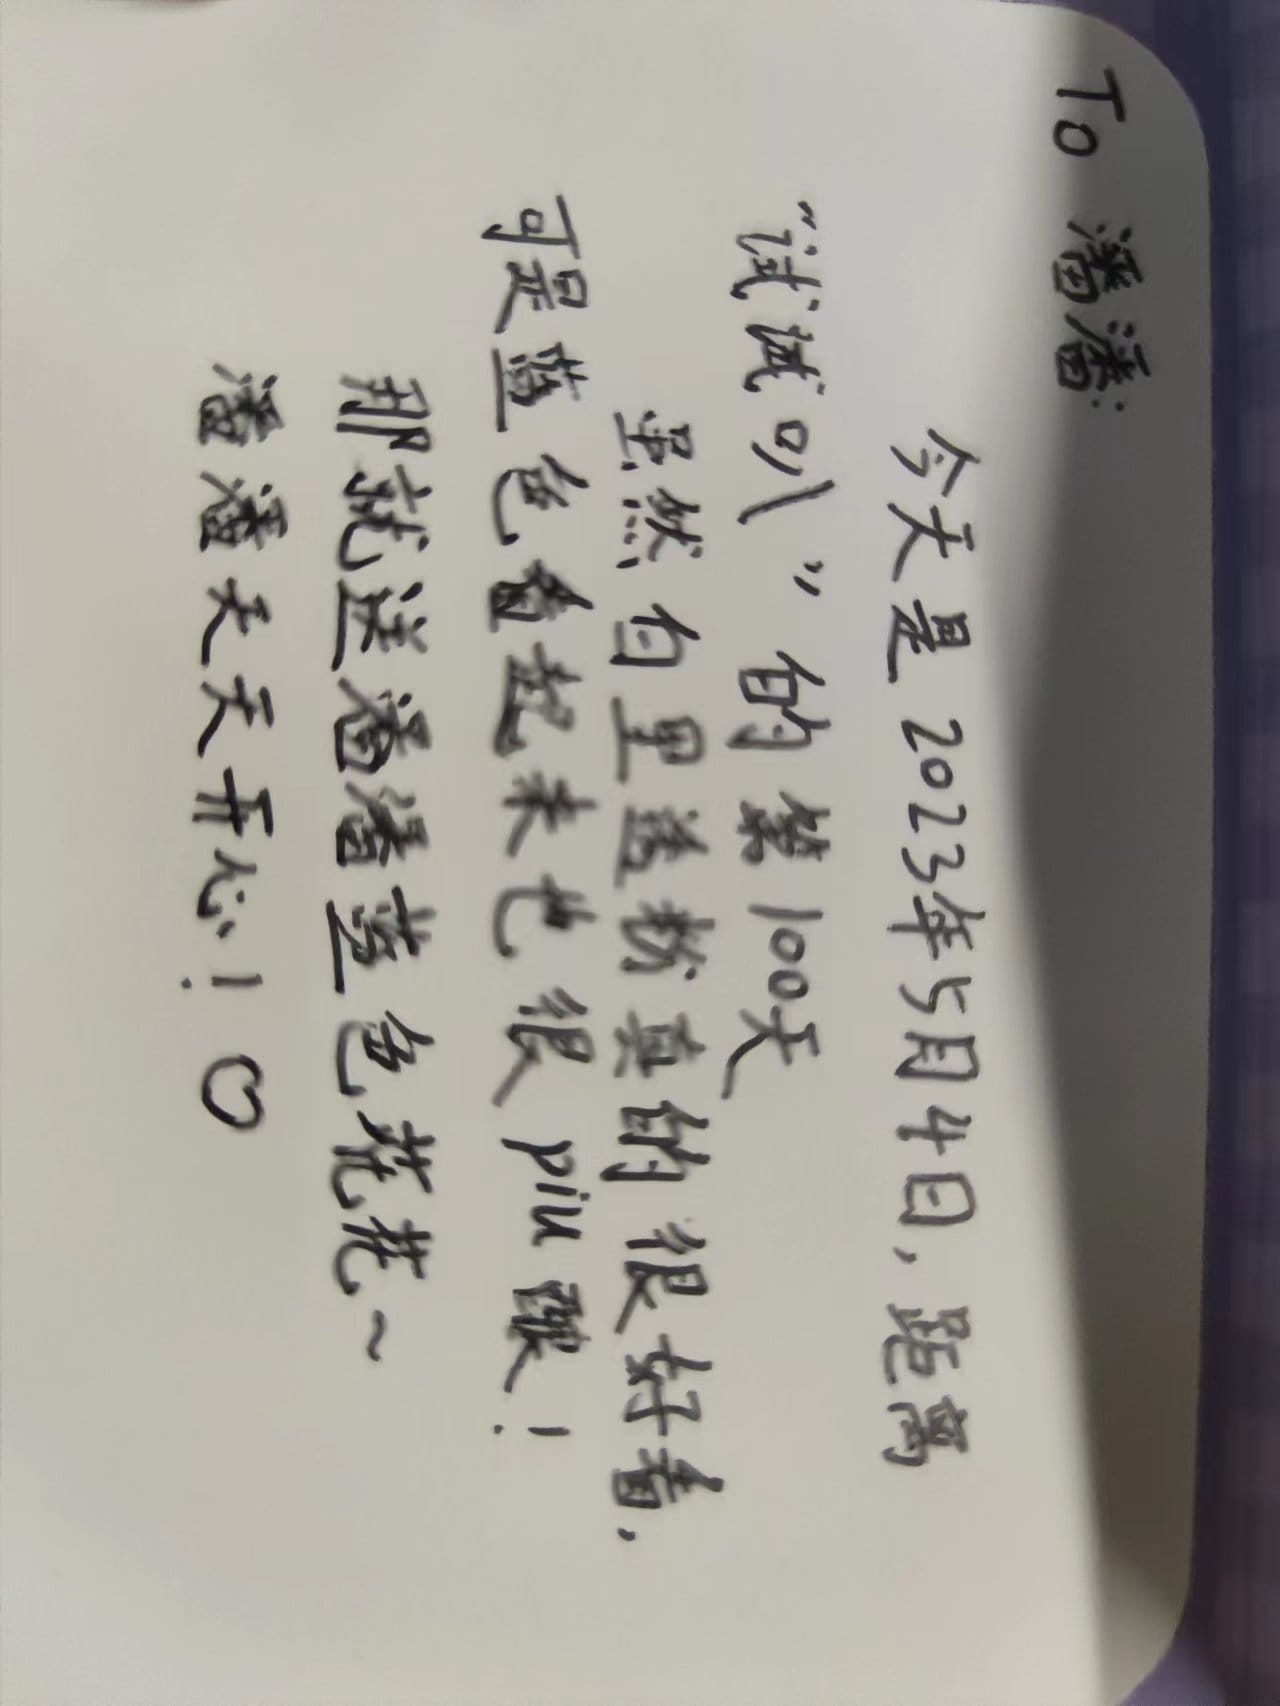 To 潘潘:
今天是 2023年5月4日, 距离
“试试叭”的第100天
虽然白里透粉真的很好看,
可是蓝色看起来也很 piu 酿!
那就送潘潘蓝色花花~
潘潘天天开心! ♡